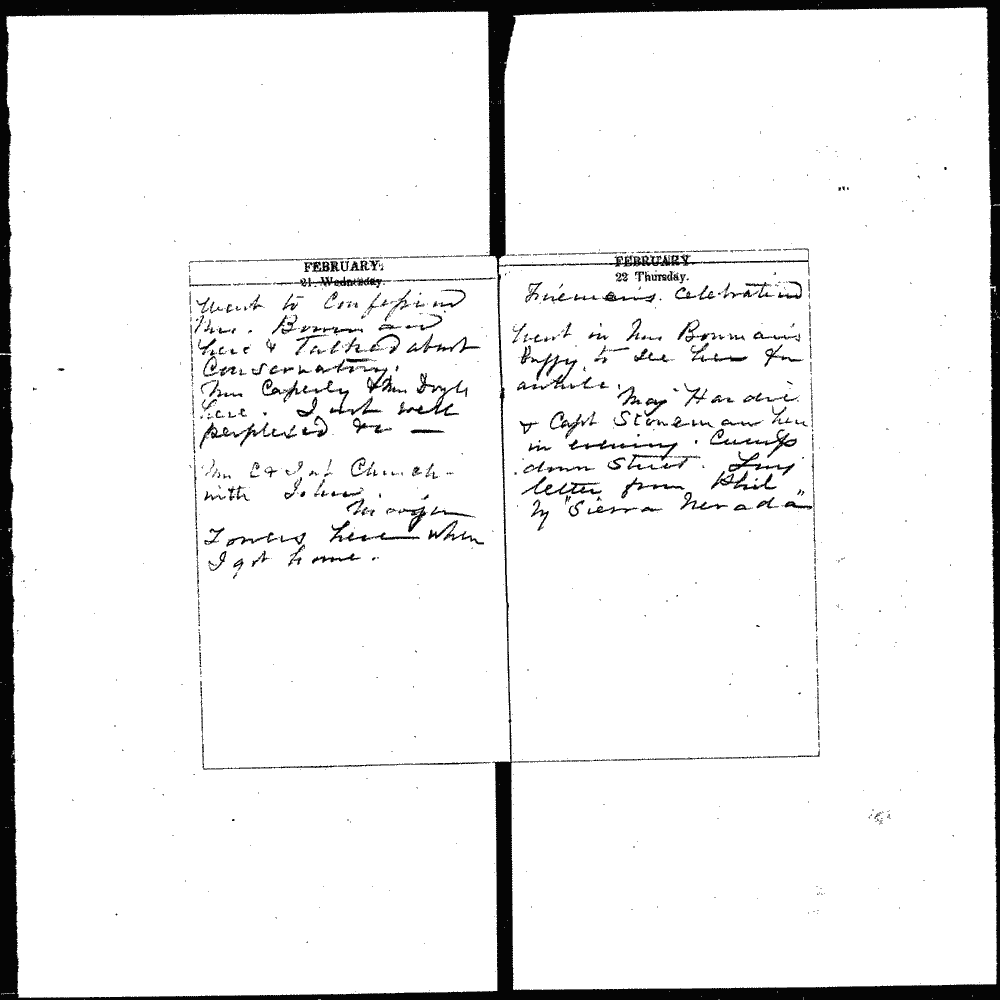 FEBRUARY.
21 Wednesday.
Went to Confession
Mrs. Bowman
here & Talked about
Conservatory.
Mrs Caperly & Mrs Doyle
here. I not well
perplexed &c —
Mrs C & I at Church
with John.
Towers here when
I got home.
FEBRUARY
22 Thursday.
Firemen's. Celebration
Went in Mrs Bowman's
Buggy to see her for
awhile.
Maj Hardie
& Capt Stoneman here
in evening. Cump
down Street. Long
letter from Phil
by "Sierra Nevada"